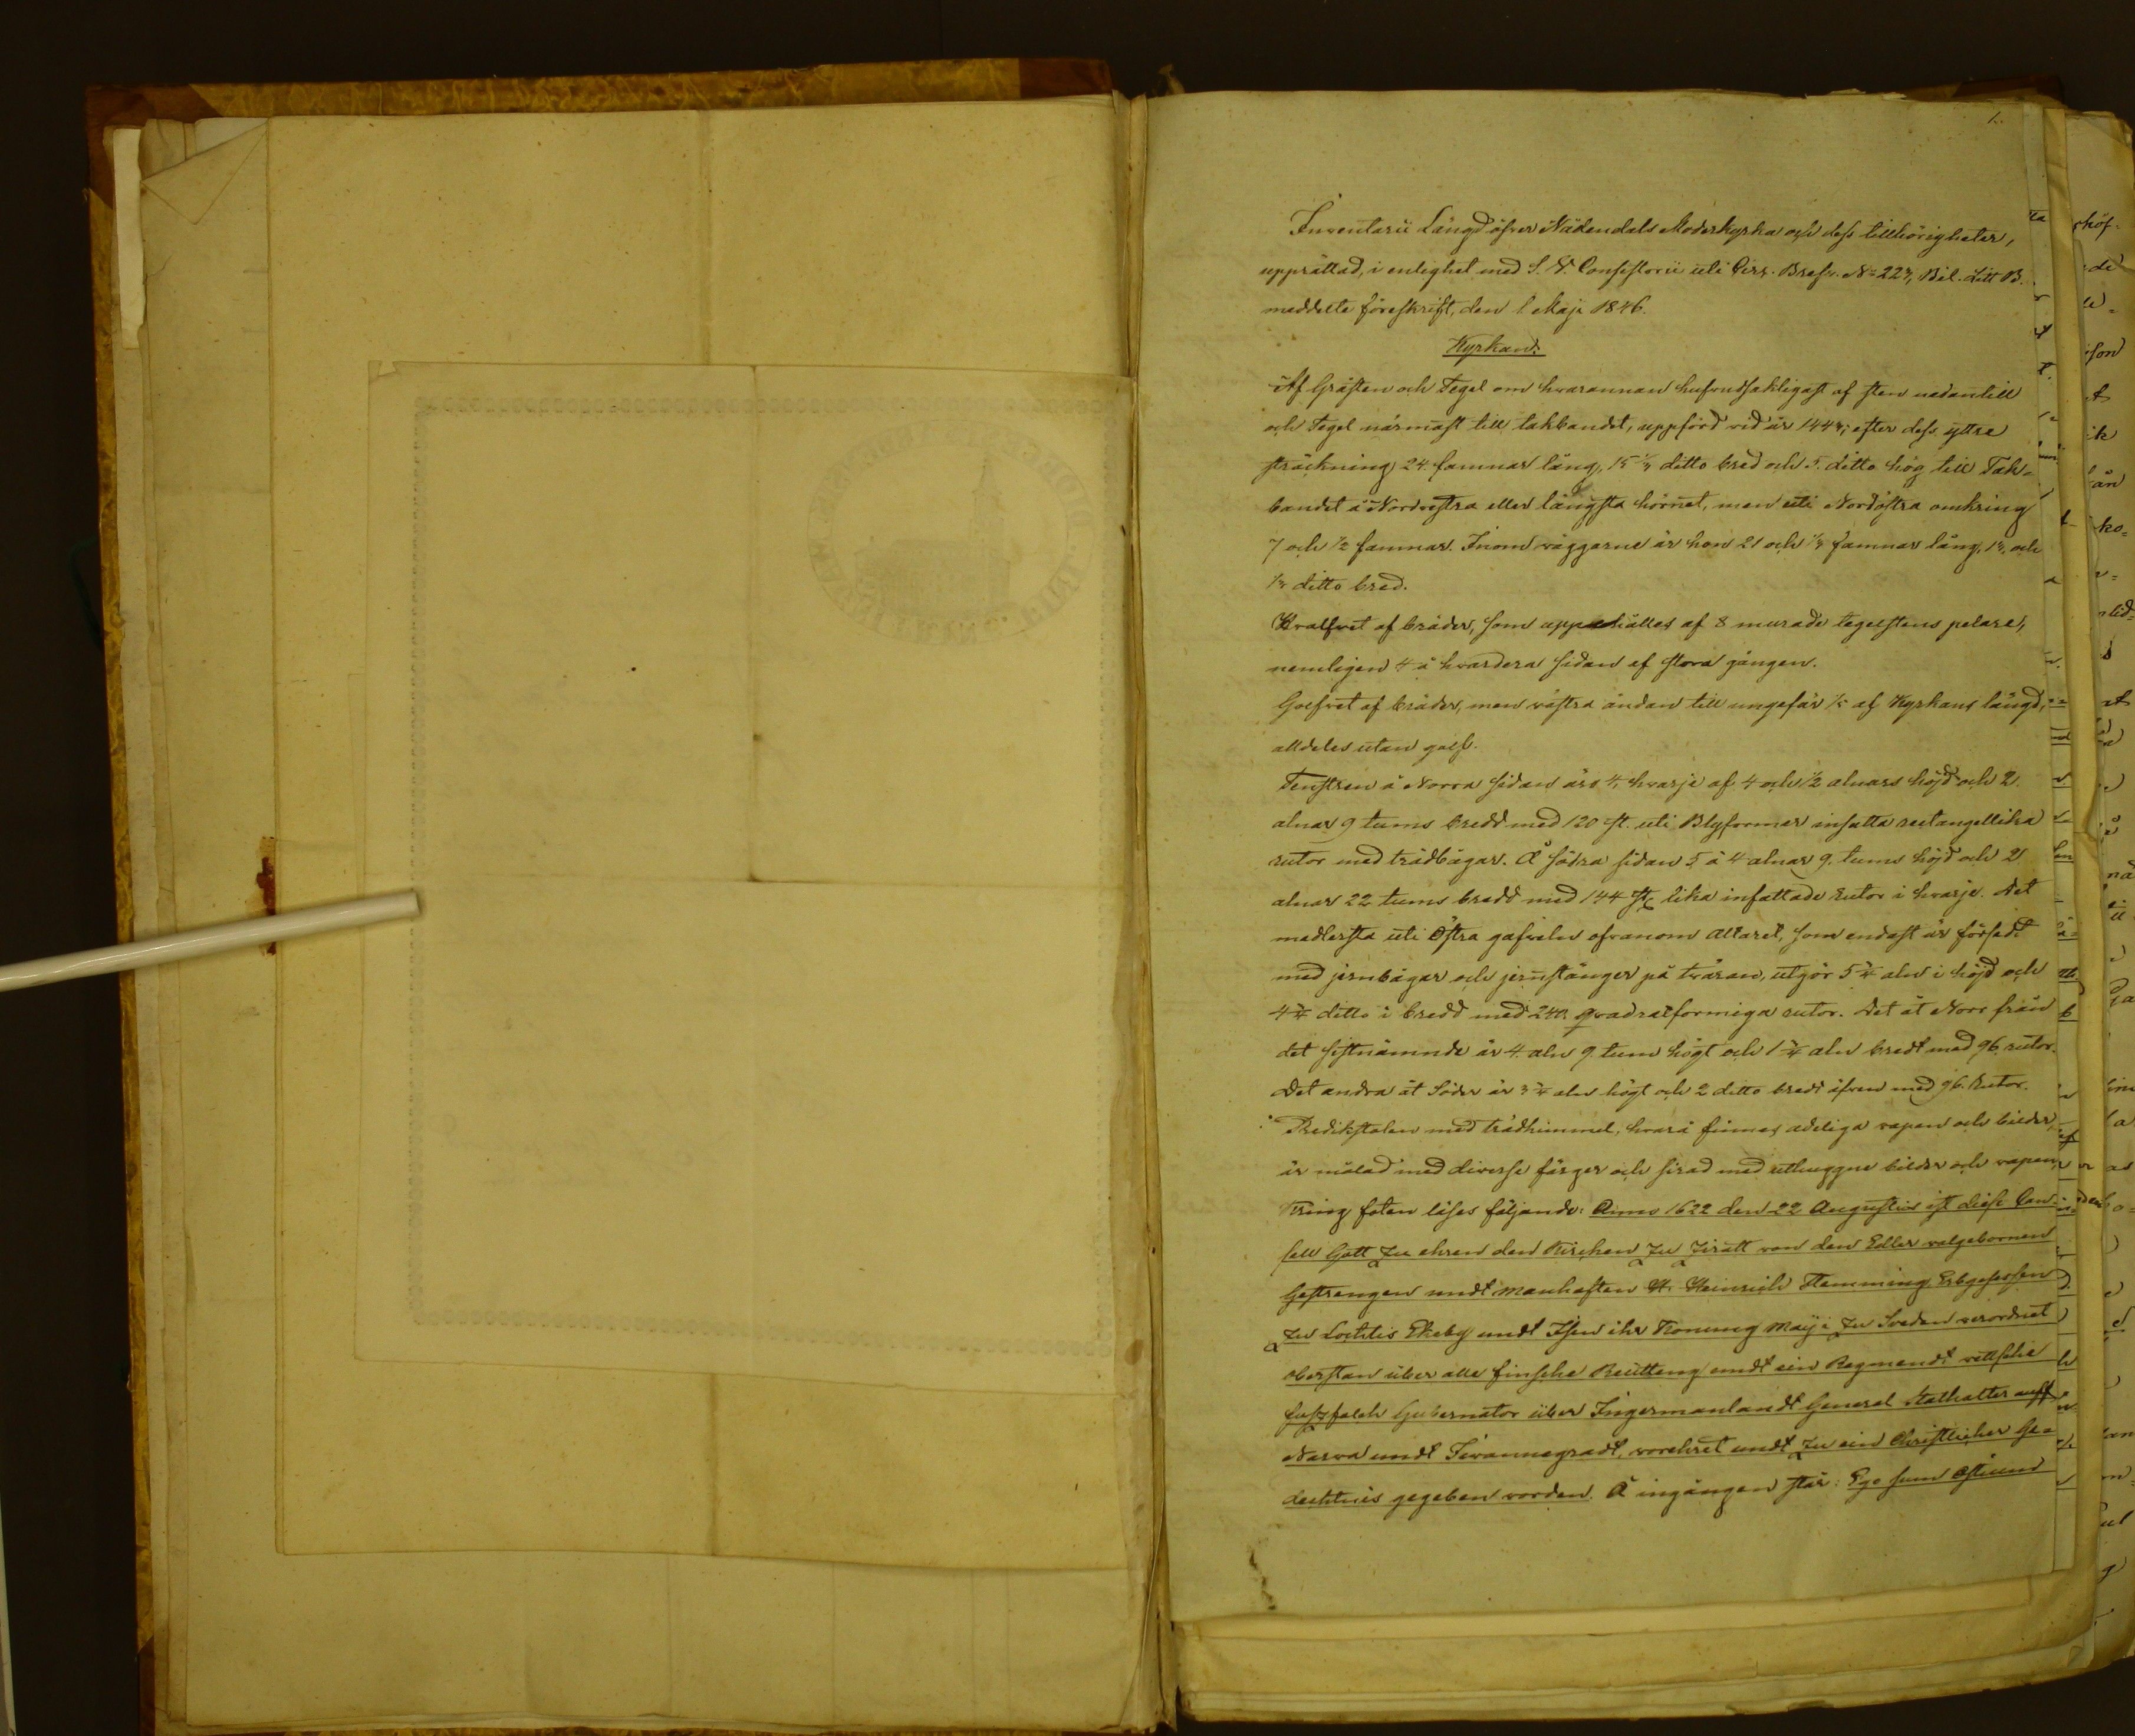 1.
Inventarii Längd öfver Nådendals Moderkyrka och dess tillhörigheter,
upprättad, i enlighet med S. V. Consistorii uti Circ. Bref N= 223, Bil. Litt B.
meddelte föreskrift, den 1 Maji 1846.
Kyrkan:
Af Gråsten och Tegel om hvarannan hufvudsakligast af sten nedantill
och Tegel närmast till takbandet, uppförd vid år 1443; efter dess yttre
sträckning 24 famnar lång, 15 1/3 ditto bred och 5 ditto hög till Tak-
bandet i Nordvestra eller längsta hörnet, men uti Nordöstra omkring
7 och 1/2 famnar. Inom väggarne är hon 21 och 1/3 famnar lång, 13 och
1/3 ditto bred.
Hvalfvet af bräder, som uppehålles af 8 murade tegelstens pelare,
nemligen 4 å hvardera sidan af stora gången.
Golfvet af bräder, men västra ändan till ungefär 1/5 af Kyrkans längd,
alldeles utan golf.
Fenstren å Norra sidan äro 4, hvarje af 4 och 1/2 alnars höjd och 2
alnar 9 tums bredd med 120 st. uti Blyformer infatta rectangellika
rutor med trådbågar. Å södra sidan 5 à 4 alnar 9 tums höjd och 2
alnar 22 tums bredd med 144 st lika infattade rutor i hvarje. Det
medlersta uti Östra gafveln ofvanom Altaret, som endast är försedt
med jernbågar och jernstänger på tväran, utgör 5 3/4 aln i höjd och
4 3/4 ditto i bredd med 240 qvadratformiga rutor. Det åt Norr från
det sistnämnde är 4 aln 9 tum högt och 1 3/4 aln bredt med 96 rutor.
Det andra åt Söder är 3 3/4 aln högt och 2 ditto bredt äfven med 96 Rutor.
Predikstolen med trädhimmel, hvarå finnas adeliga vapen och bilder,
är målad med diverse färger och sirad med uthuggne bilder och vapen,
Kring foten läses följande: Anno 1622 den 22 Augustios ist diese Can-
sell Gott zu ehren den Kirchen zu ziratt von den Edler velgebornen
Gestrengen undt manhaften H. Heinrich Flemming Erbgesessen
zu Lechtis Ekeby undt Isen ihr Konung Maij:i zu Sveden verordnet
obersten über alle finsche Reutteng undt ein Regmendt vettsche
fusz falch Gubernator über Ingermanlandt General Stathalter auff
Narva undt Jivannegradt, vorehret undt zu ein Christlicher Ge-
dechtnis gegeben vorden. Å ingången står: Ego sum Ostium